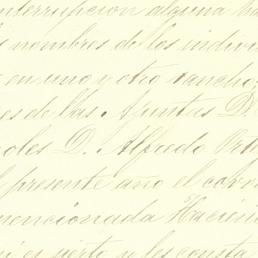 interrupcion alguna ha
s nombres de los indivi
en uno y otro rancho,
es de las Apuntas D.
oles D. Alfredo Ort
l presente año el corr
mencionada Hacien
es cierto y les consta